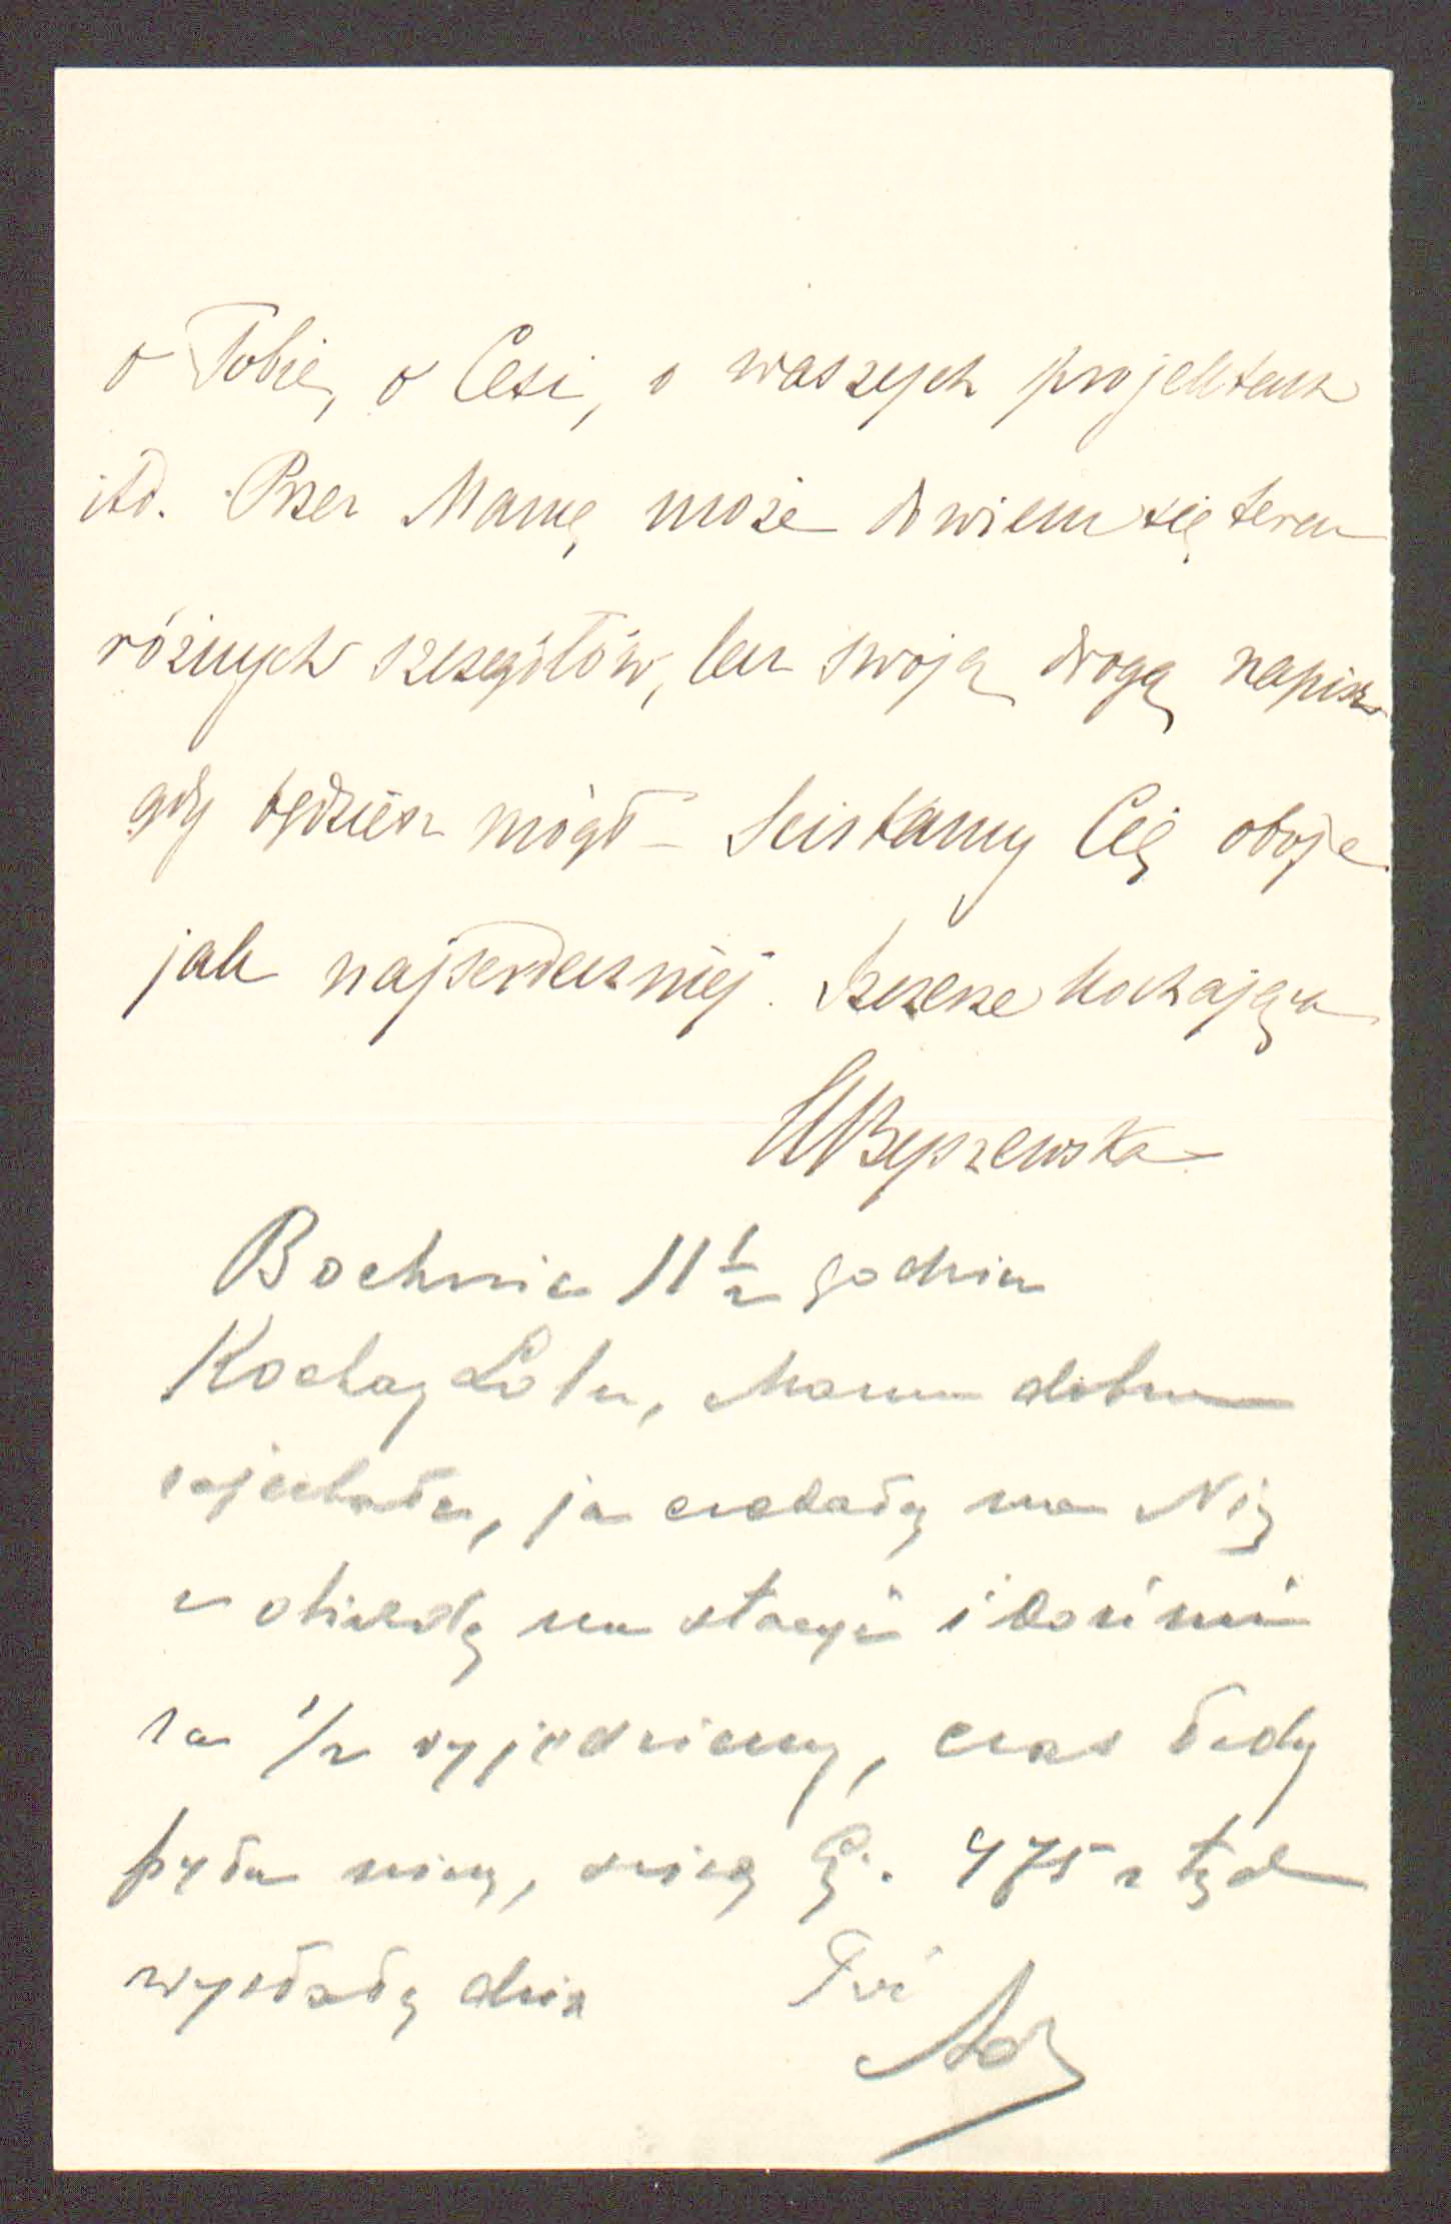 o Tobie, o Cesi, o waszych projektach
itd. Przez Mamę może dowiem się teraz
różnych szczegółów, lecz swoją drogą napisz
gdy będziesz mógł – Ściskamy Cię oboje
jak najserdeczniej. Szczerze kochająca
MByszewska
Bochnia 11 1/2 godzin
Kochany Lolu, Mama dobrze
zajechała, ja czekałem na Nią
na stacyi i
za 1/2 wyjedziemy, czas
475 z tąd
wysłałem dziś Twój